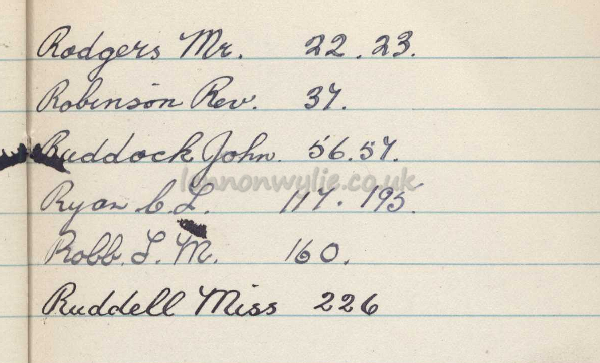 Rodgers Mr. 22. 23.
Robinson Rev. 37.
Ruddock John. 56. 57.
lennonwylie.co.uk
Ryan C. L. 117. 195.
Robb. L. M. 160.
Ruddell Miss 226